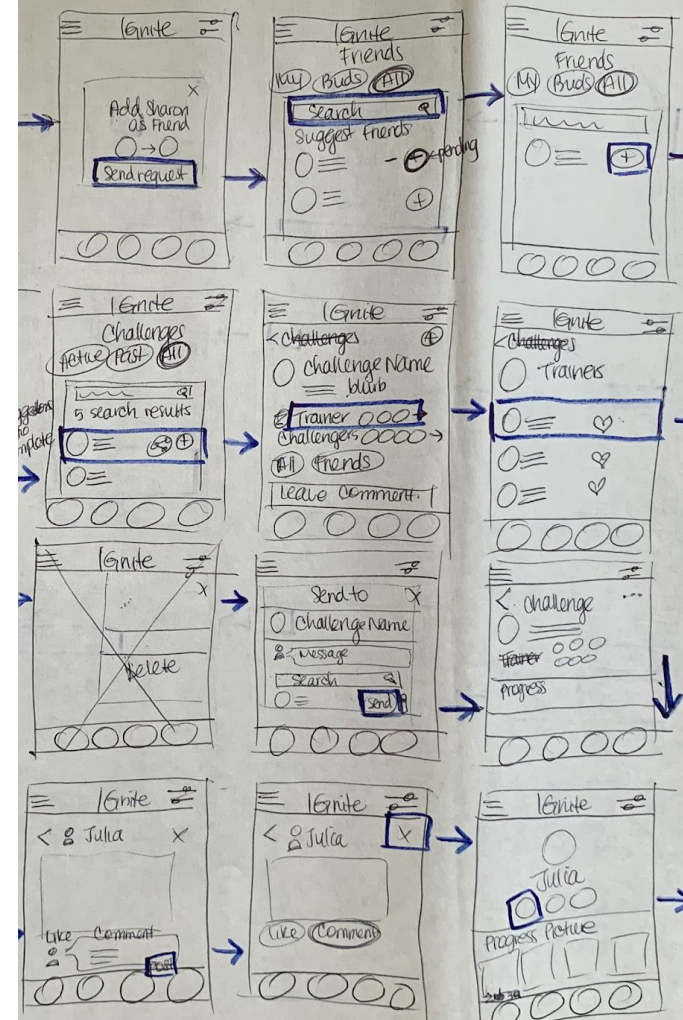 IGnite
X
Add Sharon
as Friend
Send request
IGnite
Friends
My Buds All
Search
Suggest friends
pending
IGnite
Friends
My Buds All
IGnite
Challenges
Active Past All
5 search results
IGnite
< Challenges
Challenge Name
blurb
Trainer
Challengers
All Friends
Leave Comment.
IGnite
< Challenges
Trainers
IGnite
X
Delete
Send to X
Challenge Name
Message
Search
Send
< Challenge ...
Trainer
Progress
IGnite
< Julia X
Like Comment
Post
IGnite
< Julia X
Like Comment
IGnite
Julia
Progress Picture